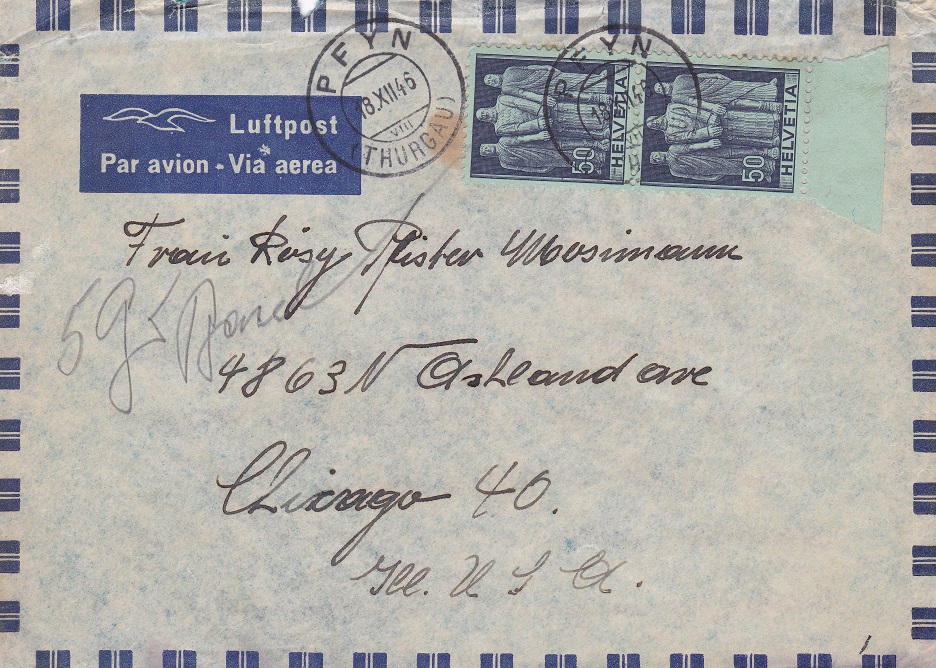 PFYN
18.XII.46
VIII
(THURGAU)
PFYN
HELVETIA
50
HELVETIA
50
Luftpost
Par avion - Via aerea
Frau Rösy Pfister Mosimann
4863 N Ashland ave
Chicago 40.
Ill. U S A.